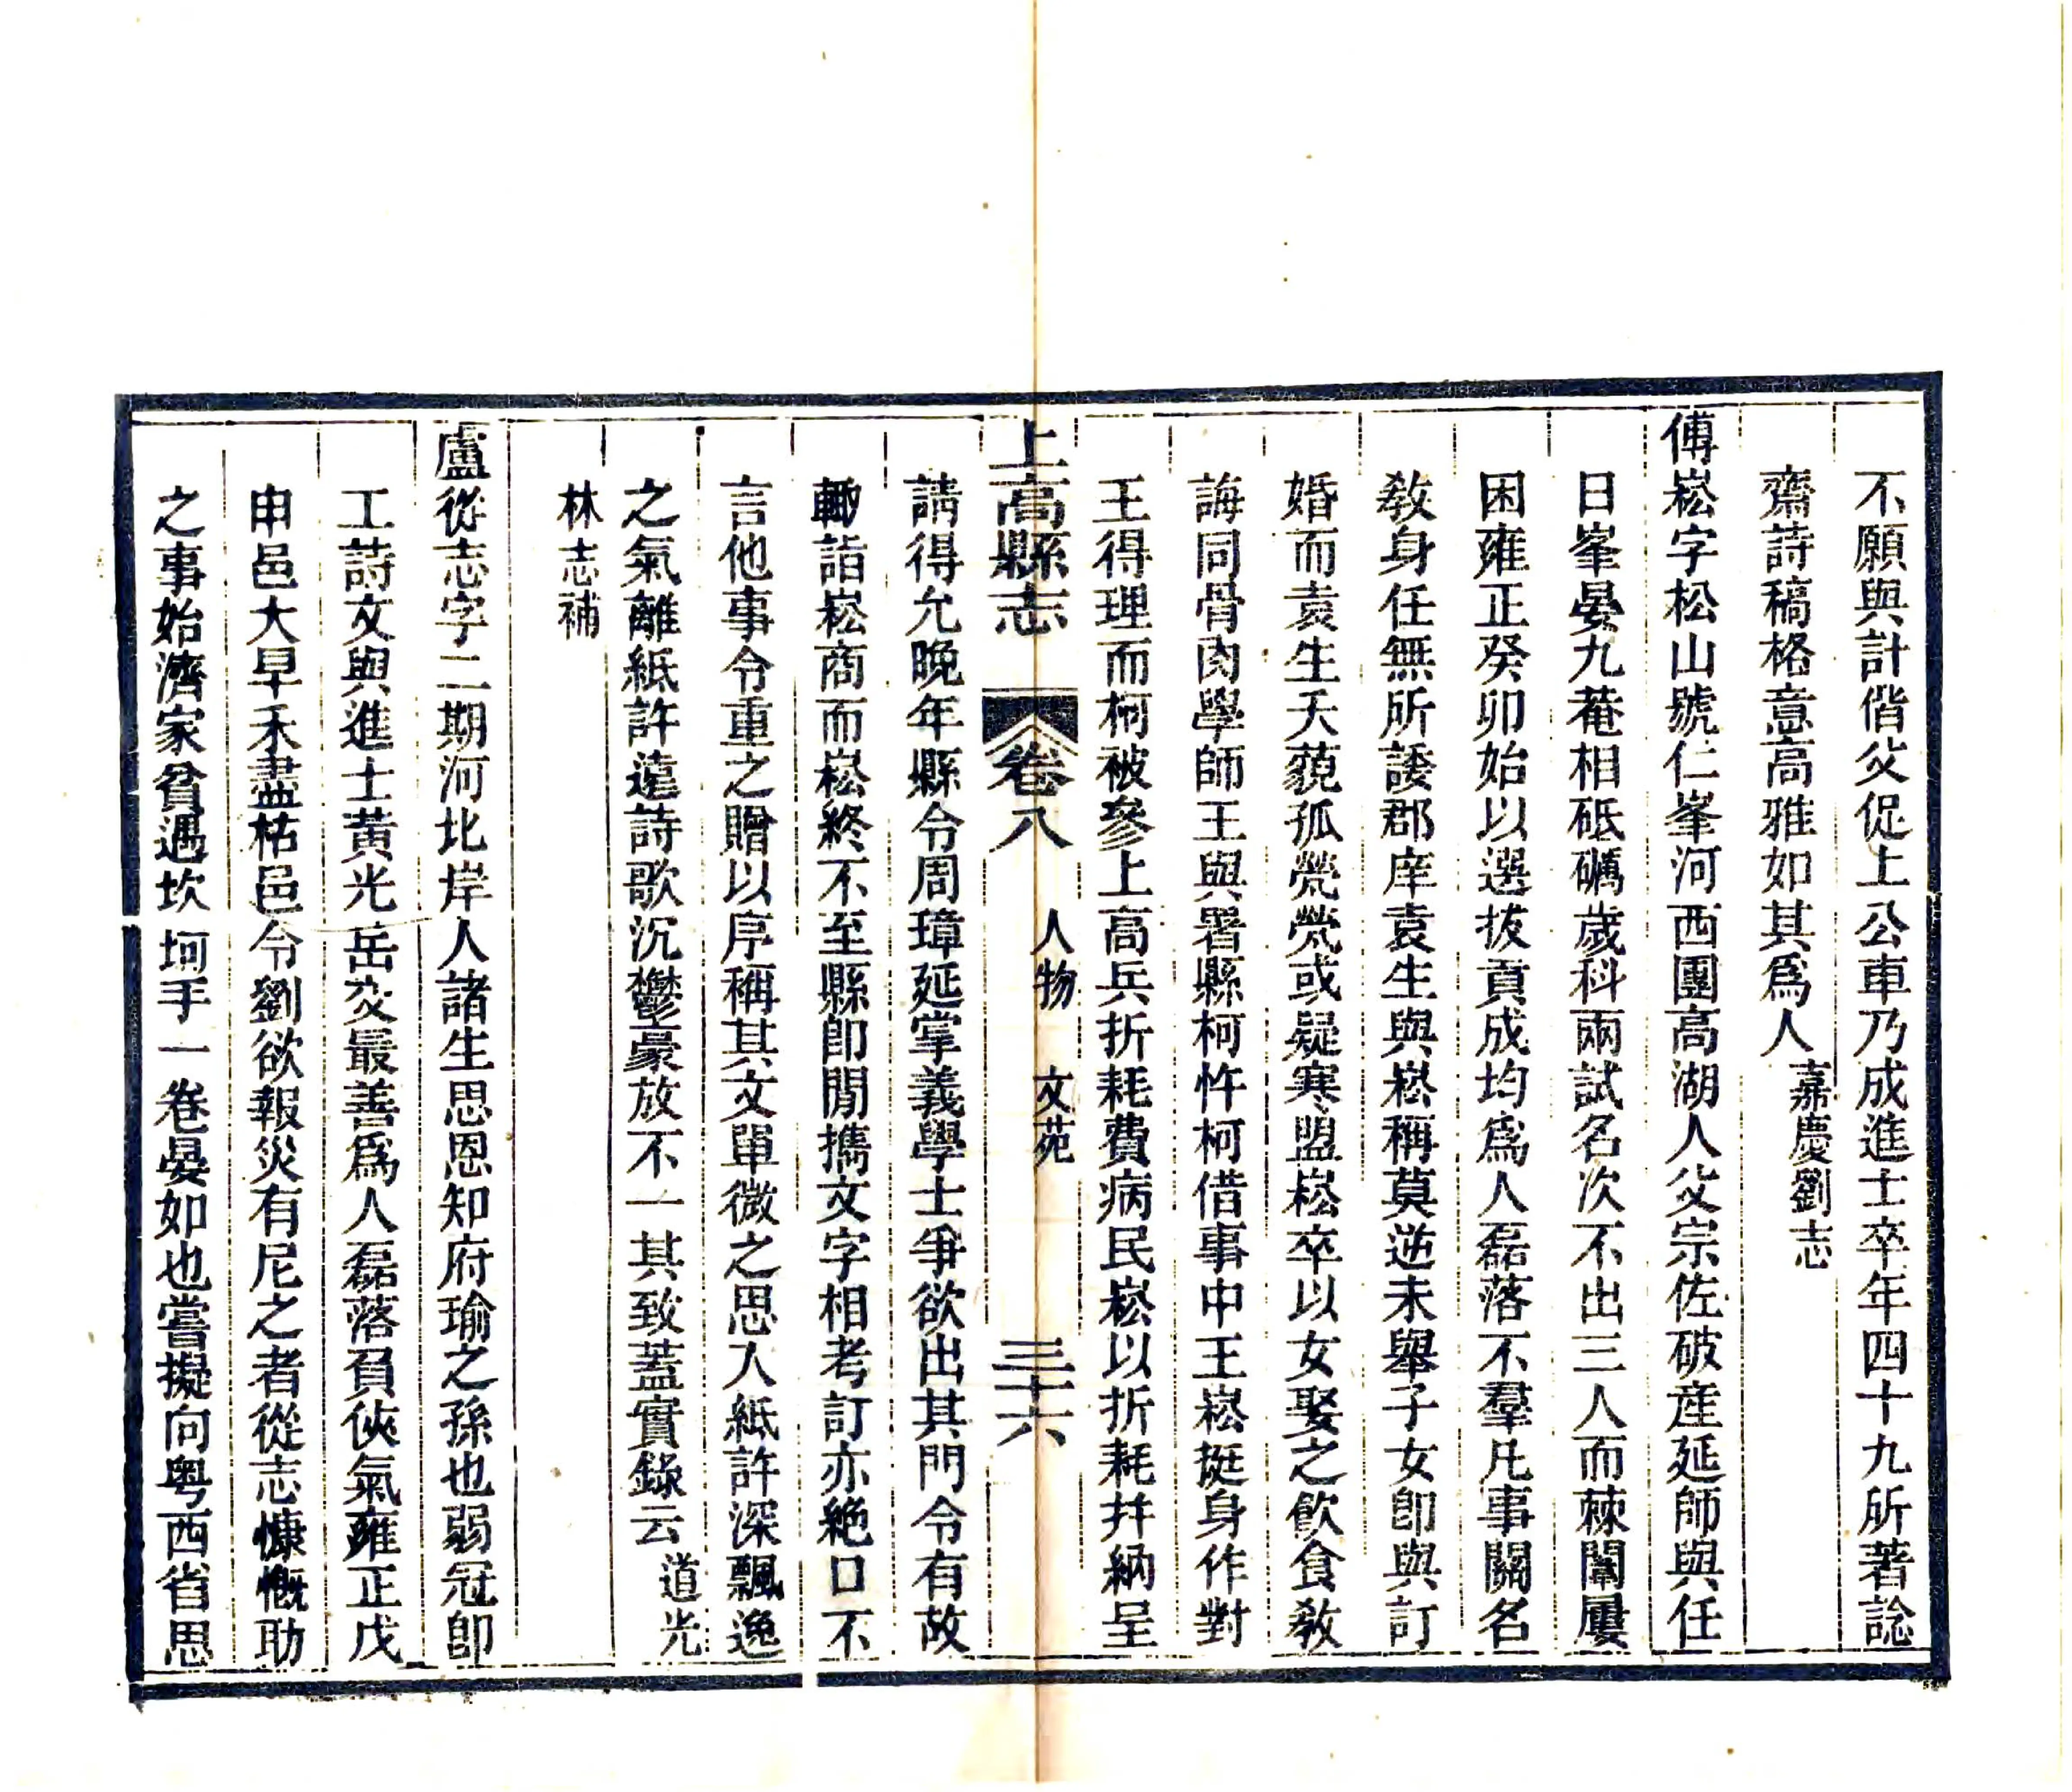 不願與計偕父促上公車乃成進士卒年四十九所著諗
齋詩稿格意高雅如其爲人嘉慶劉志
傅崧字松山號仁峯河西團高湖人父宗佐破産延師與任
日峯晏九菴相砥礪歲科兩試名次不出三人而棘闈屢
困雍正癸卯始以選拔貢成均爲人磊落不羣凡事關名
敎身任無所諉郡庠袁生與崧稱莫逆未舉子女卽與訂
婚而袁生夭藐孤煢煢或疑寒盟崧卒以女娶之飮食敎
誨同骨肉學師王與署縣柯忤柯借事中王崧挺身作對
王得理而柯被參上高兵折耗費病民崧以折耗幷納呈
請得允晚年縣令周璋延掌義學士爭欲出其門令有故
輙詣崧商而崧終不至縣卽閒攜文字相考訂亦絶口不
言他事令重之贈以序稱其文單微之思人紙許深飄逸
之氣離紙許遠詩歌沉鬱豪放不一其致蓋實錄云道光
林志補
盧從志字二期河北岸人諸生思恩知府瑜之孫也弱冠卽
工詩文與進士黄光岳交最善爲人磊落負俠氣雍正戊
申邑大旱禾盡枯邑令劉欲報災有尼之者從志慷慨助
之事始濟家貧遇坎坷手一卷晏如也嘗擬向粤西省思
上高縣志
卷八
人物 文苑
三十六